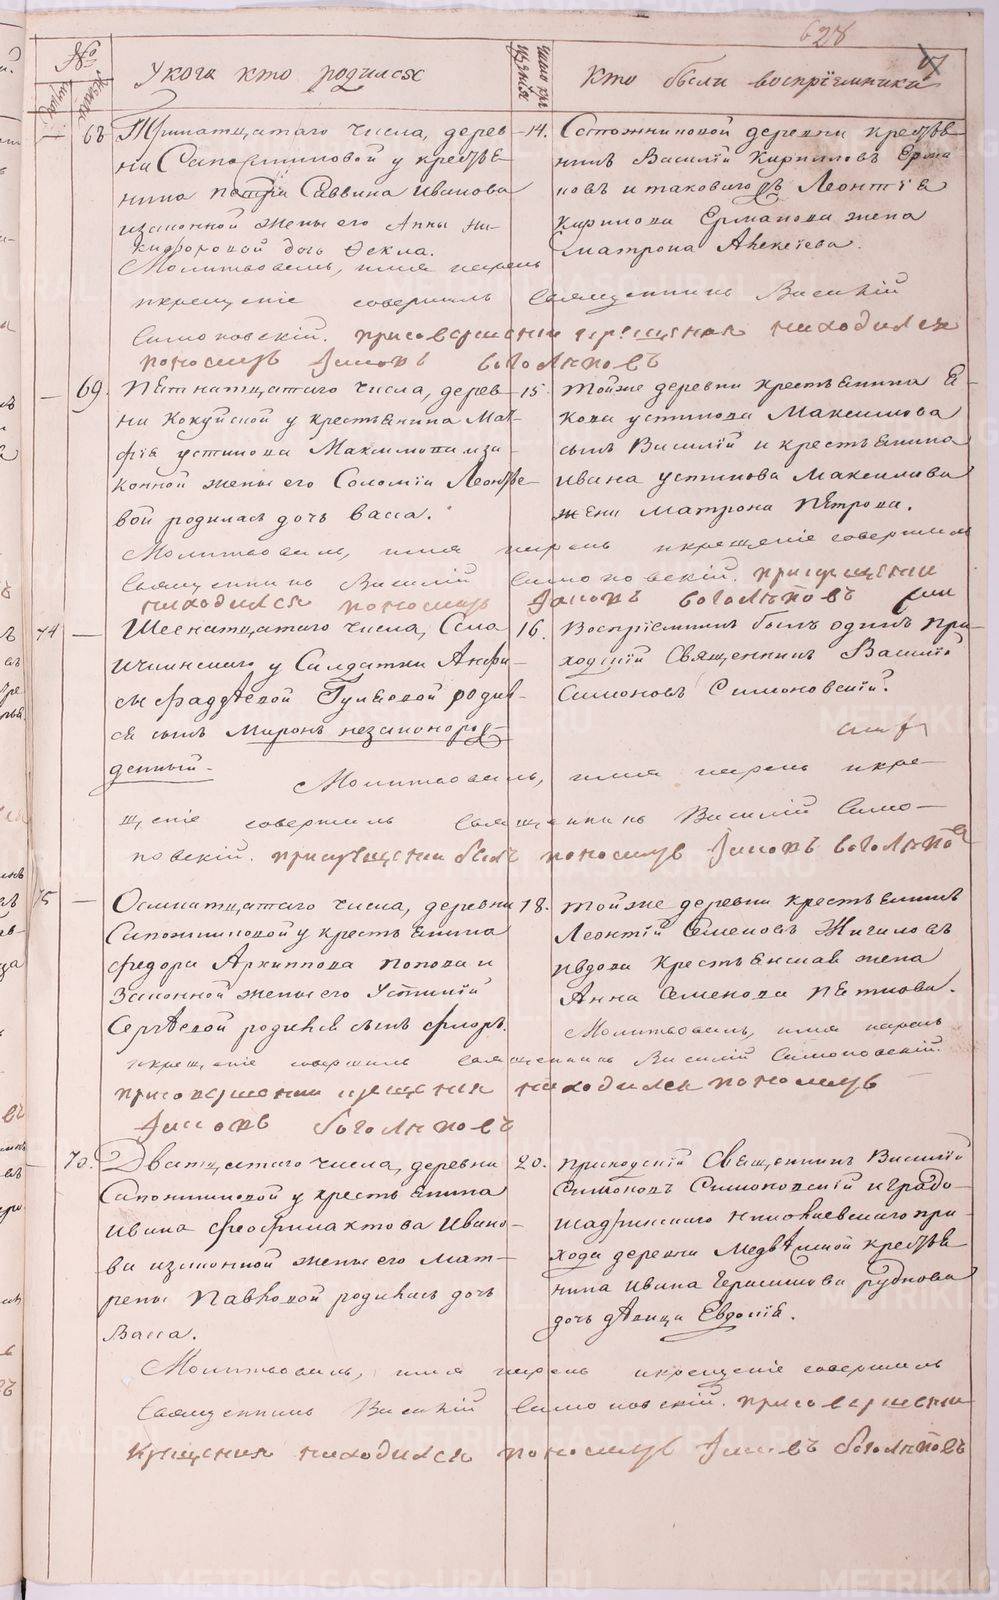 628
№
У кого кто родился
число крещенія
Кто были воспріемники
68
Тринатцатаго числа, дерев-
14.
ни Сапожниковой у крестья-
нина Саввина Иванова
изаконной жены его Анны Ни-
кифоровой дочь Фекла.
Сапожниковой деревни кресть-
нинъ Василій Кириловъ Ерма
ковъ и таковагожъ Леонтія
Кирилова Ермакова жена
Матрона Алексіева.
Молитвовалъ, имя нарекъ
икрещеніе совершилъ Священникъ Василій
Симоновскій. присовершении крещения находился
пономарь Яковъ боголѣповъ
69.
Пятнатцатаго числа, дерев-
15.
ни Кокуйской у крестьянина Мат-
фѣя устинова Максимова иза-
конной жены его Соломіи Леонтье-
вой родилась дочь Васса.
тойже деревни крестьянина
устинова Максимова
сынъ Василій и крестьянина
Ивана устинова Максимова
жена Матрона Петрова.
Молитвовалъ, имя нарекъ икрещеніе совершилъ
Священникъ Василій Симоновскій. прикрещении
находился пономарь Яковъ боголѣповъ
74
Шеснатцатаго числа, Села
16.
Ичкинскаго у Солдатки Анфи-
сы Фаддѣевой родил-
ся сынъ Миронъ незаконорож-
денный.
Воспріемникъ былъ одинъ при-
ходскій Священникъ Василій
Симоновъ Симоновскій.
Молитвовалъ, имя нарекъ икре-
щеніе совершилъ Священникъ Василій Симо-
новскій. прикрещении былъ пономарь Яковъ боголѣповъ
75
Осмнатцатаго числа, деревни
18.
Сапожниковой у крестьянина
Федора Архиппова Попова и
Законной жены его Устиніи
Сергѣевой родился сынъ Флоръ.
тойже деревни крестьянинъ
Леонтій Семеновъ Жигиловъ
ивдова Крестьянская жена
Анна Семенова Пяткова.
Молитвовалъ, имя нарекъ
икрещеніе совершилъ Священникъ Василій Симоновскій.
присовершении крещения находился пономарь
Яковъ боголѣповъ
70.
Дватцатаго числа, деревни
20.
Сапожниковой у крестьянина
Ивана Феофилактова Ивано-
ва изаконной жены его Мат-
рены Павловой родилась дочь
Васса.
приходскій Священникъ Василій
Симоновъ Симоновскій и градо-
шадринскаго николаевскаго при-
хода деревни крестья
нина Ивана Герасимова Рудкова
дочь дѣвица Евдокія.
Молитвовалъ, имя нарекъ икрещеніе совершилъ
Священникъ Василій Симоновскій. присовершении
крещения находился пономарь Яковъ боголѣповъ
METRIKI.GASO-URAL.RU